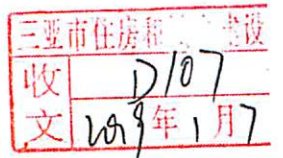 三亚市住房和建设
收文
D107
2019年1月7